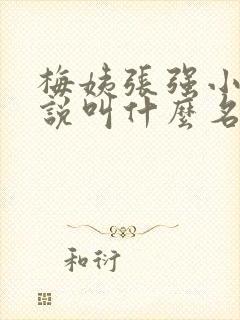 梅姨張强小
說叫什麼名
和衍